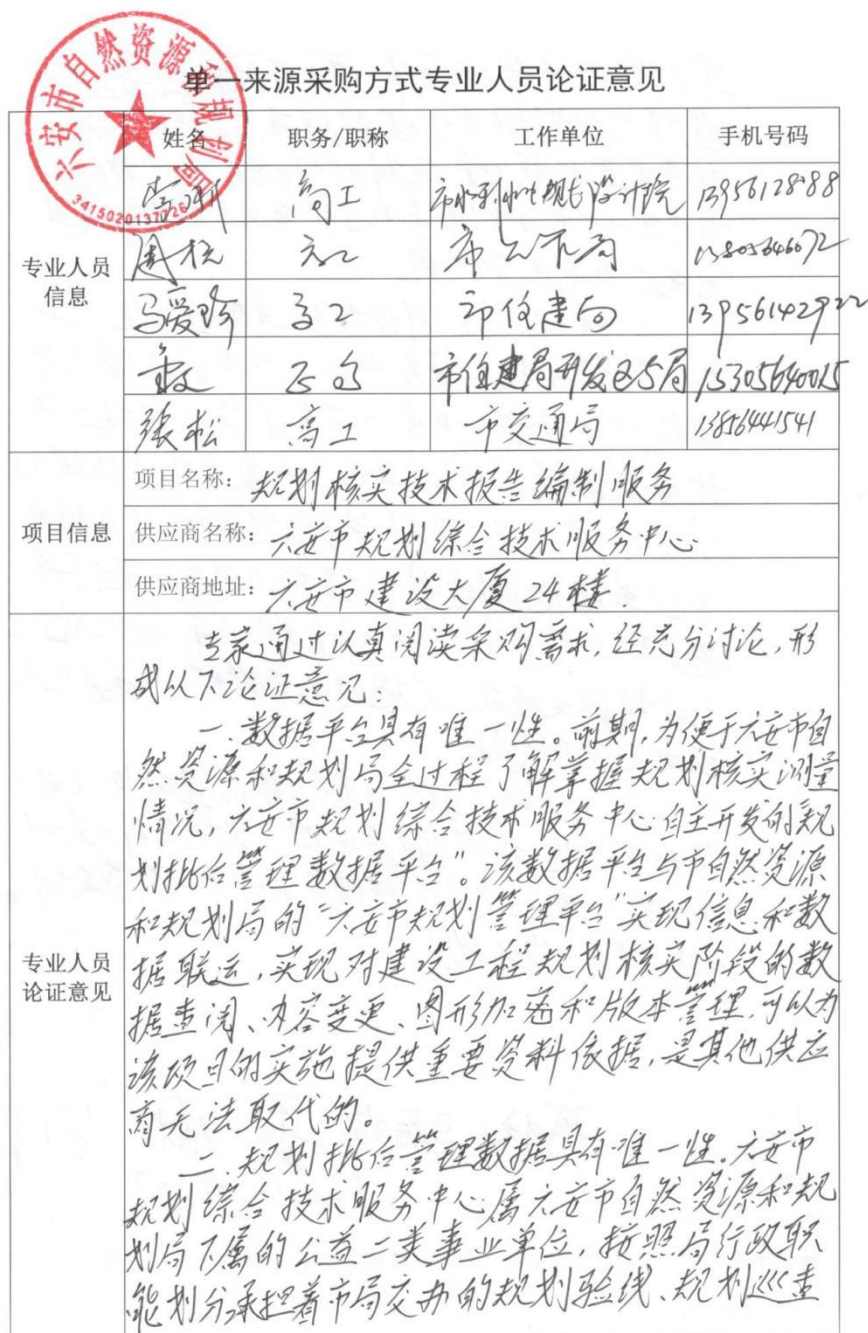 六安市自然资源和规划局
单一来源采购方式专业人员论证意见
姓名 职务/职称 工作单位 手机号码
高工 市水利水电规划设计院 13956128988
专业人员
信息
马爱珍 高工 市住建局 13956142922
市住建局开发区分局 15305640015
张松 高工 市交通局 13856441541
项目信息
项目名称：规划核实技术报告编制服务
供应商名称：六安市规划综合技术服务中心
供应商地址：六安市建设大厦24楼.
专业人员
论证意见
专家通过认真阅读采购需求,经充分讨论,形
成以下论证意见:
一.数据平台具有唯一性。前期,为便于六安市自
然资源和规划局全过程了解掌握规划核实测量
情况,六安市规划综合技术服务中心自主开发的"规
划批后管理数据平台"。该数据平台与市自然资源
和规划局的"六安市规划管理平台"实现信息和数
据联运,实现对建设工程规划核实阶段的数
据查阅、内容变更、图形加密和版本管理,可以为
该项目的实施提供重要资料依据,是其他供应
商无法取代的。
二.规划批后管理数据具有唯一性.六安市
规划综合技术服务中心属六安市自然资源和规
划局下属的公益二类事业单位,按照局行政职
能划分承担着市局交办的规划验线、规划巡查